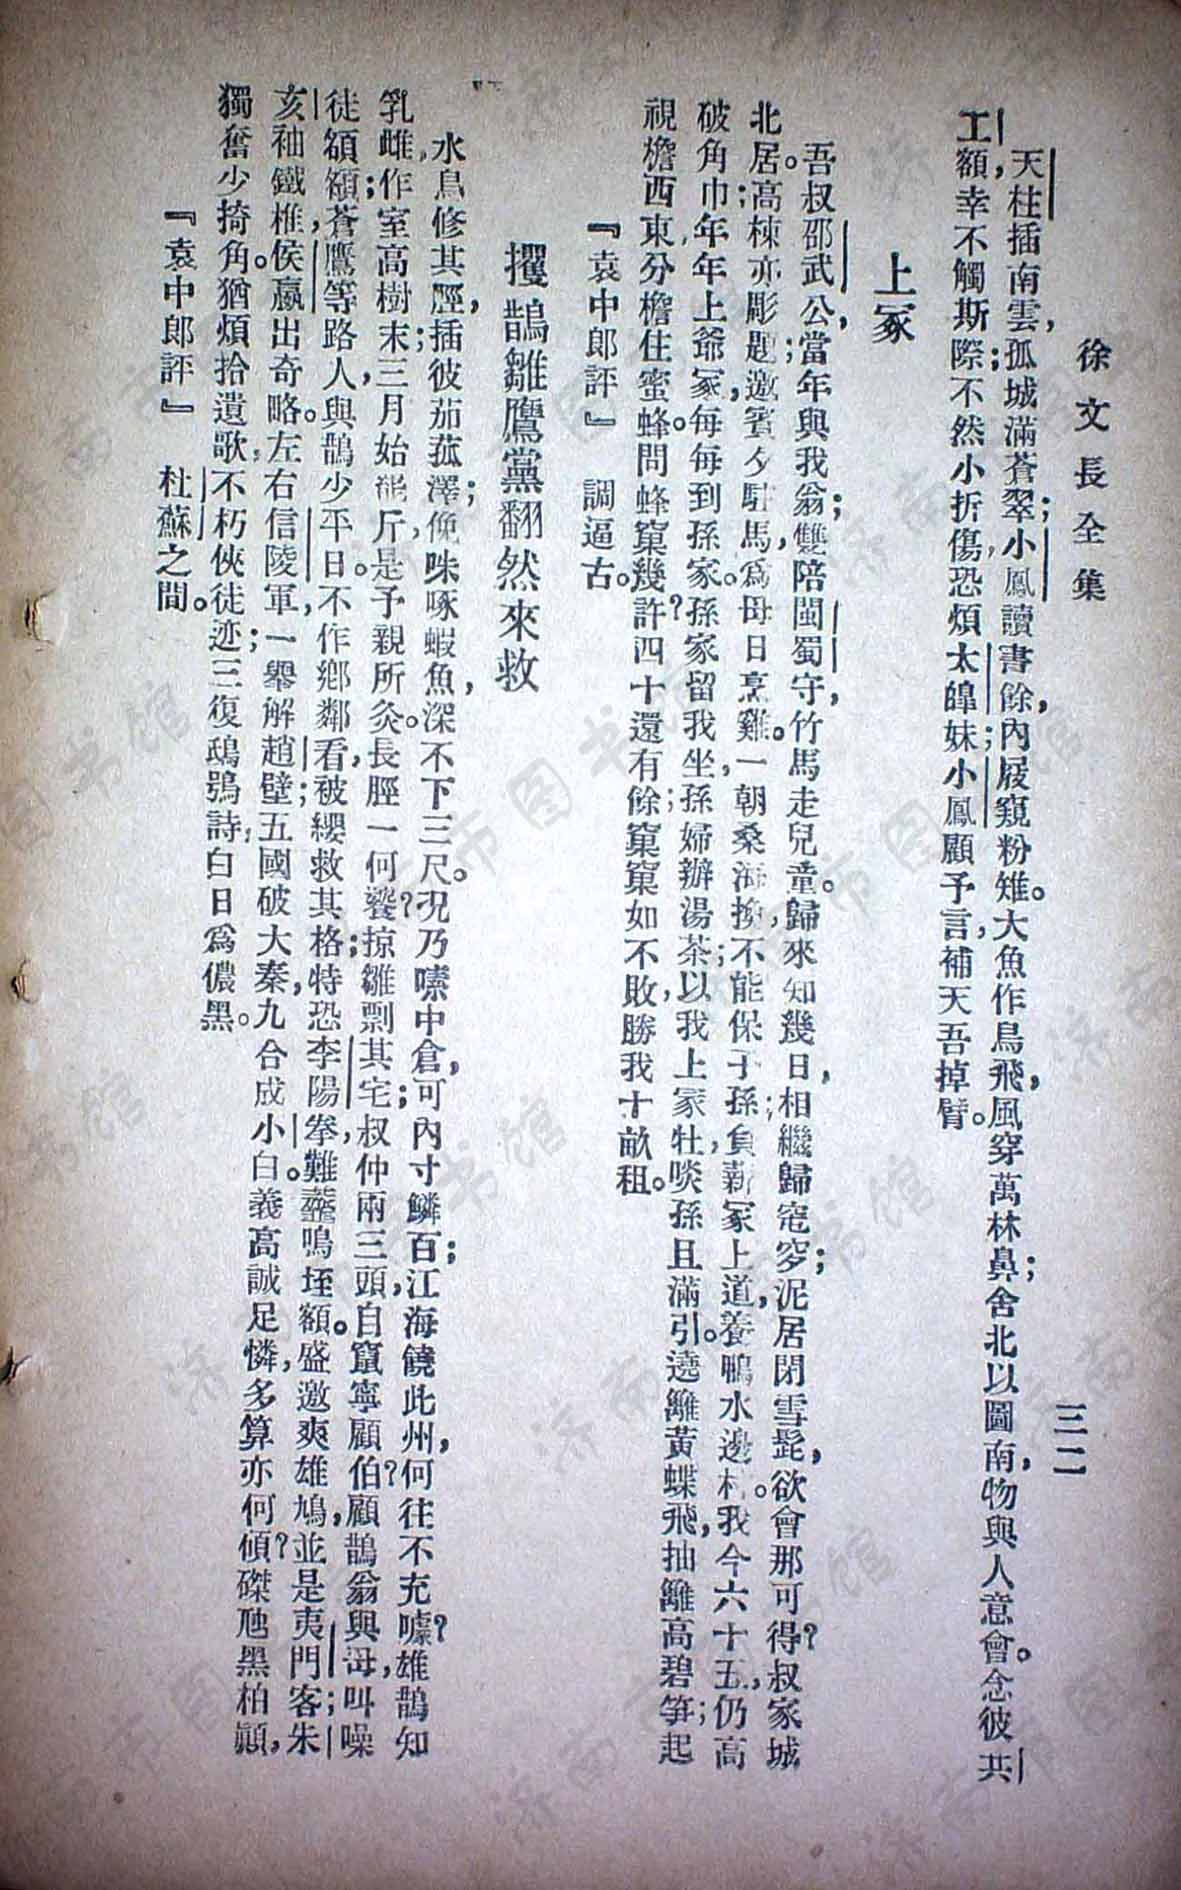 徐文長全集
三二
天柱插南雲，孤城滿蒼翠；小鳳讀書餘，內屐窺粉雉。大魚作鳥飛，風穿萬林鼻；舍北以圖南，物與人意會。念彼共
工額，幸不觸斯際；不然小折傷，恐煩太皥妹。小鳳顧予言，補天吾掉臂。
上冢
吾叔邵武公，當年與我翁；雙陪閩蜀守，竹馬走兒童。歸來知幾日，相繼歸窀穸；泥居閉雪髭，欲會那可得？叔家城
北居，高棟亦彫題；邀賓夕駐馬，爲母日烹雞。一朝桑海換，不能保子孫；負薪冢上道，養鴨水邊村。我今六十五，仍高
破角巾；年年上爺冢，每每到孫家。孫家留我坐，孫婦辦湯茶；以我上冢牡，啖孫且滿引。遶籬黃蝶飛，抽籬高碧筍；起
視檐西東，分檐住蜜蜂。問蜂窠幾許？四十還有餘；窠窠如不敗，勝我十畝租。
『袁中郎評』　調逼古。
攫鵲雛鷹黨翻然來救
水鳥修其脛，插彼茄菰澤；俛咮啄蝦魚，深不下三尺。況乃嗉中倉，可內寸鱗百；江海饒此州，何往不充噱？雄鵲知
乳雌，作室高樹末；三月始能斤，是予親所灸。長脛一何饕？掠雛剽其宅；叔仲兩三頭，自竄寧顧伯？鵲翁與母，叫噪
徒頟頟；蒼鷹等路人，與鵲少平日。不作鄉鄰看，被纓救其格；特恐李陽拳，難虀鳴垤額。盛邀爽雄鳩，並是夷門客；朱
亥袖鐵椎，侯嬴出奇略。左右信陵軍，一舉解趙壁；五國破大秦，九合成小白。義高誠足憐，多算亦何傾？磔虺黑柏顚，
獨奮少掎角。猶煩拾遺歌，不朽俠徒迹；三復鴟鴞詩，白日爲儂黑。
『袁中郎評』　杜蘇之間。